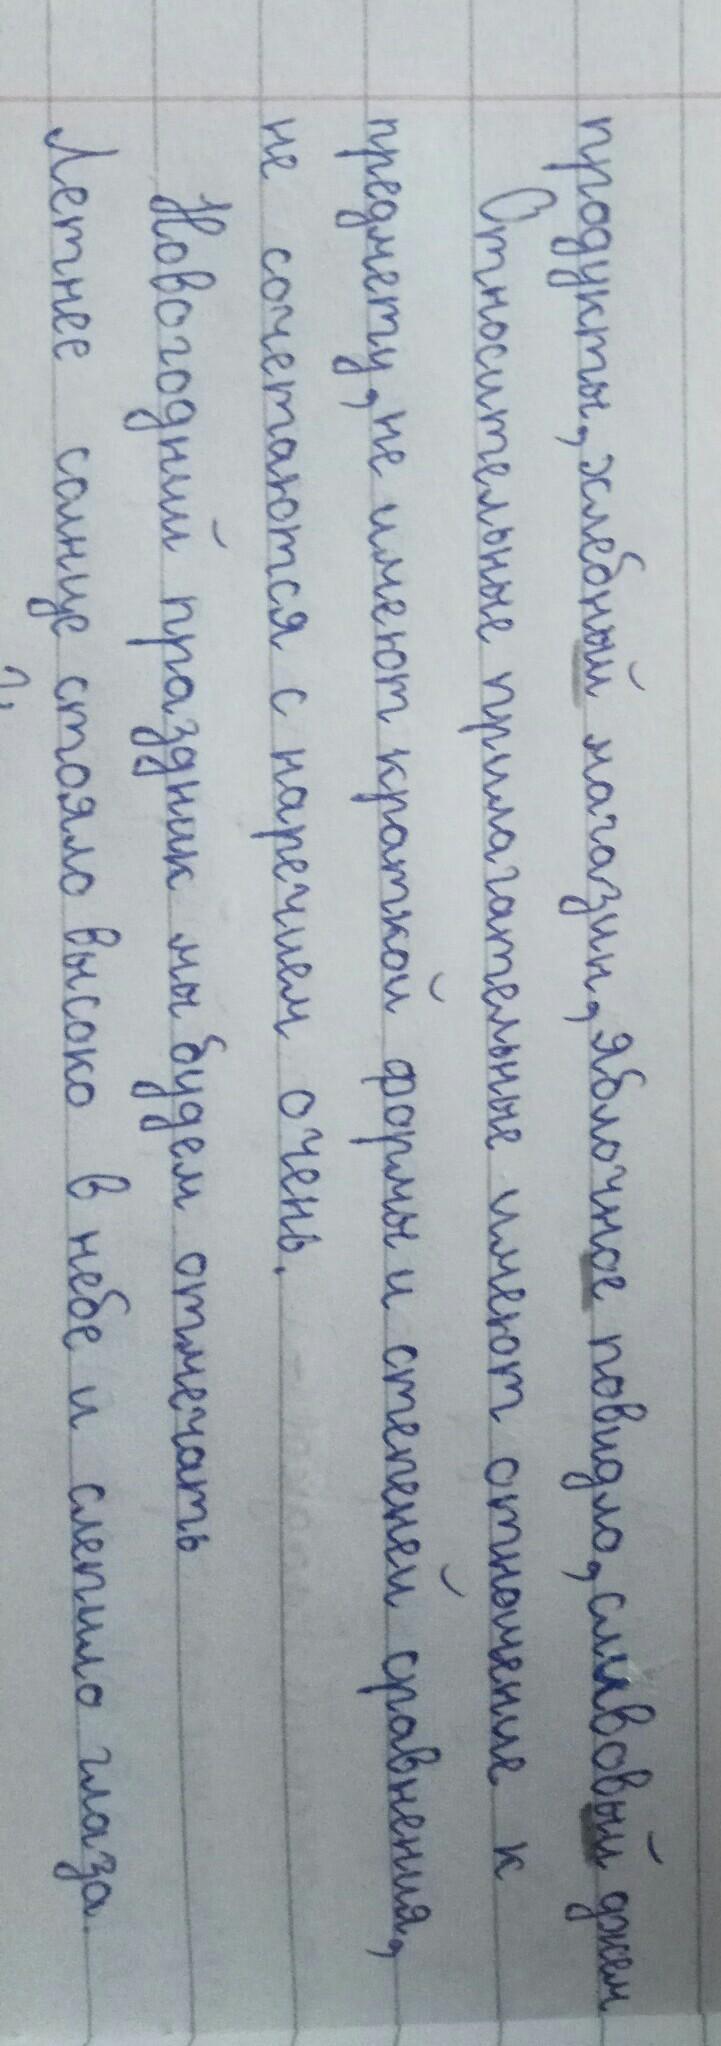 продукты, хлебный магазин, яблочное повидло, сливовый джем
Относительные прилагательные имеют отношение к
предмету, не имеют краткой формы и степеней сравнения,
не сочетаются с наречием очень.
Новогодний праздник мы будем отмечать
Летнее солнце стояло высоко в небе и слепило глаза.